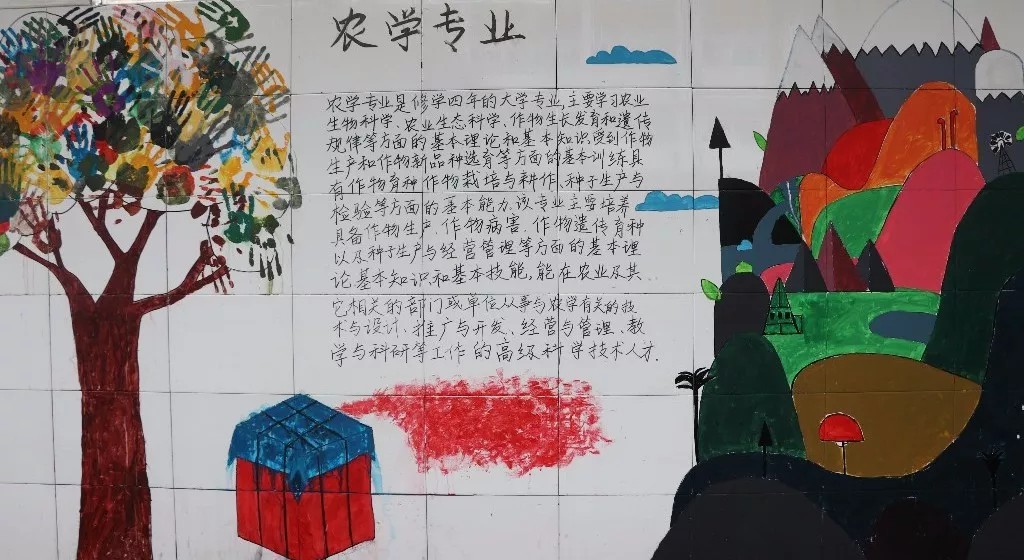 农学专业
农学专业是修学四年的大学专业,主要学习农业
生物科学、农业生态科学、作物生长发育和遗传
规律等方面的基本理论和基本知识受到作物
生产和作物新品种选育等方面的基本训练具
有作物育种作物栽培与耕作、种子生产与
检验等方面的基本能力.该专业主要培养
具备作物生产.作物病害.作物遗传育种
以及种子生产与经营管理等方面的基本理
论基本知识和基本技能,能在农业及其
它相关的部门或单位从事与农学有关的技
术与设计、推广与开发、经营与管理、教
学与科研等工作的高级科学技术人才.